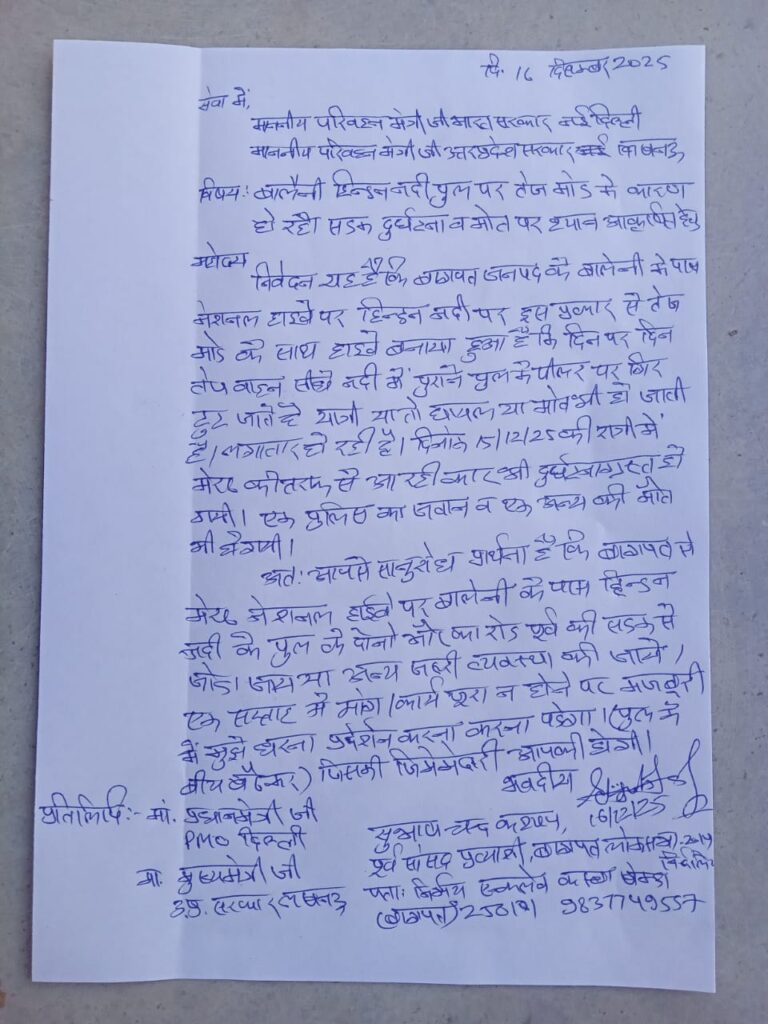 दि. 16 दिसम्बर 2025
सेवा में,
माननीय परिवहन मंत्री जी भारत सरकार नई दिल्ली
माननीय परिवहन मंत्री जी उत्तर प्रदेश सरकार लखनऊ
विषय: बालैनी हिन्डन नदी पुल पर तेज मोड के कारण
हो रही सडक दुर्घटना व मौत पर ध्यान आकर्षित हेतु
महोदय
निवेदन यह है कि बागपत जनपद के बालैनी के पास
नेशनल हाइवे पर हिन्डन नदी पर इस प्रकार से तेज
मोड के साथ हाइवे बनाया हुआ है कि दिन पर दिन
तेज वाहन सीधे नदी में पुराने पुल के पीलर पर गिर
टुट जाते है यात्री या तो घायल या मौत भी हो जाती
है। लगातार हो रही है। दिनांक 15/12/25 की रात्री में
मेरठ की तरफ से आ रही कार भी दुर्घटनाग्रस्त हो
गयी। एक पुलिस का जवान व एक अन्य की मौत
भी हो गयी।
अत: आपसे सानुरोध प्रार्थना है कि बागपत से
मेरठ नेशनल हाईवे पर बालैनी के पास हिन्डन
नदी के पुल के दोनो और का रोड पूर्व की सडक से
जोडा जाय या अन्य जरूरी व्यवस्था की जाये।
एक सप्ताह में मांग/कार्य पूरा न होने पर मजबूरी
में मुझे धरना प्रदर्शन करना करना पडेगा। (पुल के
बीच बैठकर) जिसकी जिम्मेदारी आपकी होगी।
भवदीय
16/12/25
प्रतिलिपि:- मां. प्रधानमंत्री जी
PMO दिल्ली
मा. मुख्यमंत्री जी
उ.प्र. सरकार लखनऊ
सुभाष चन्द कश्यप,
पूर्व सांसद प्रत्याशी, बागपत लोकसभा. 2019
निर्दलिय
पता: निर्भय एन्कलेव कस्बा खेकडा
(बागपत) 250101 9837749557